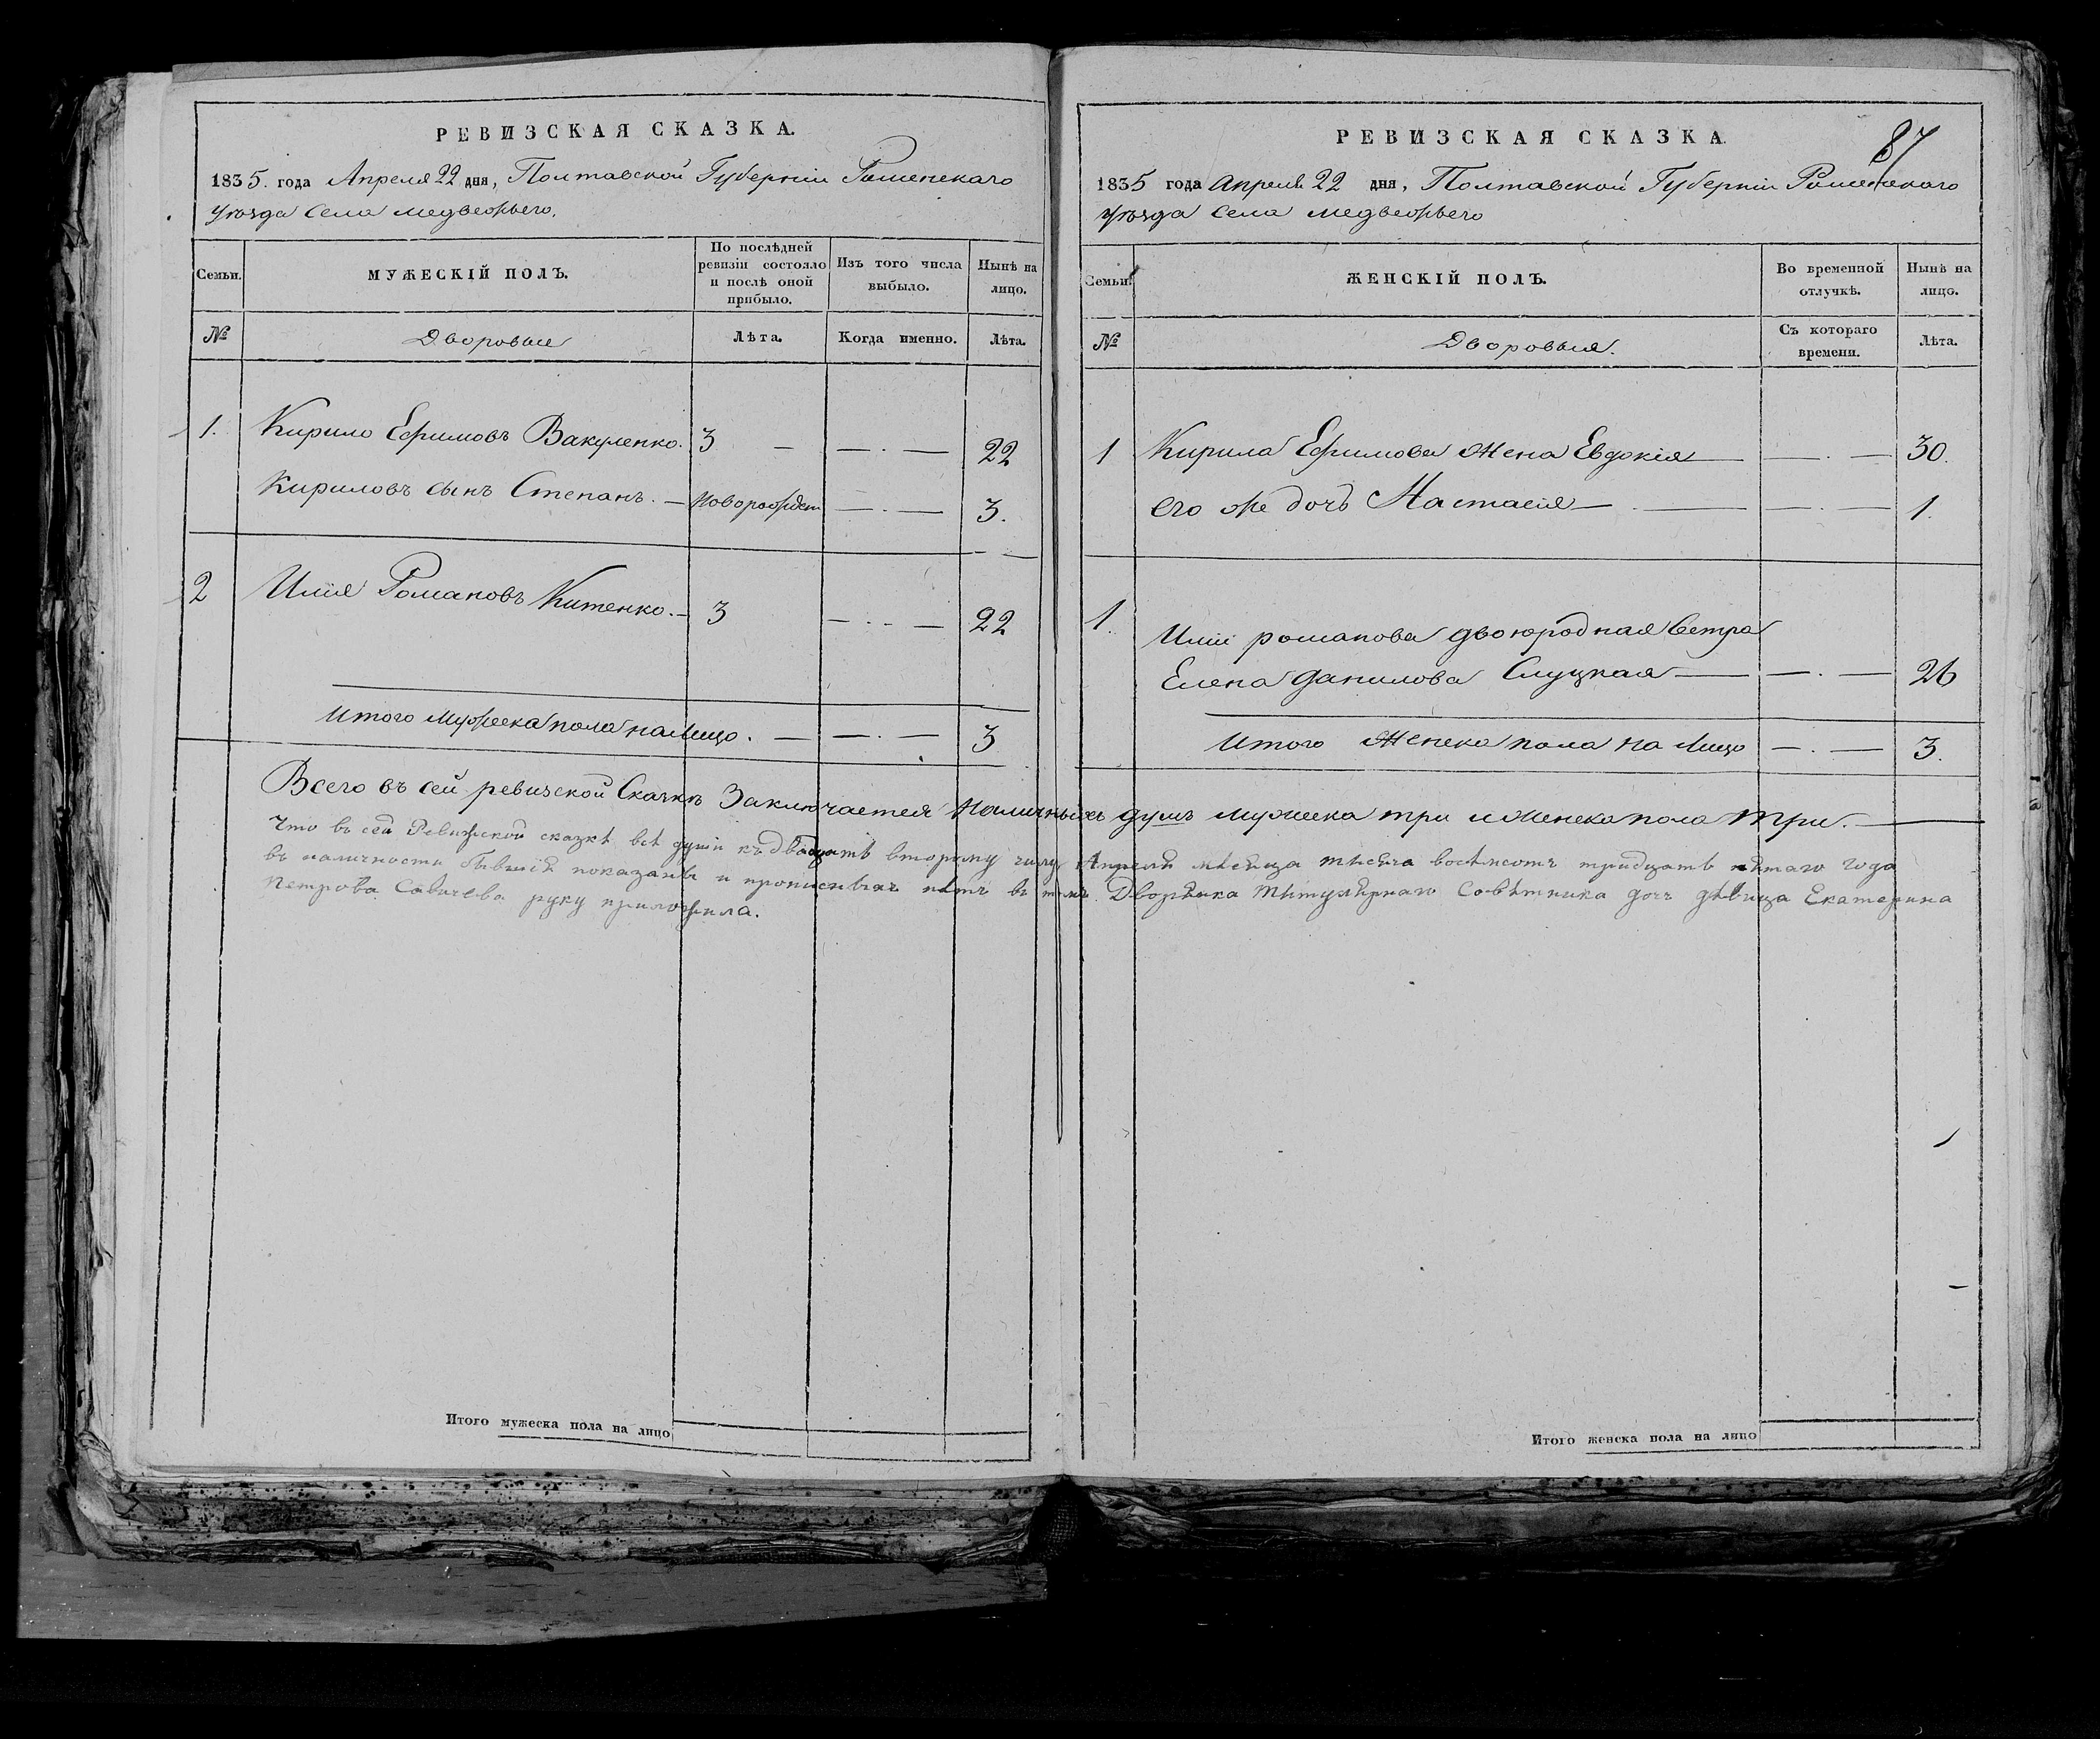 РЕВИЗСКАЯ СКАЗКА.
1835. года Апреля 22 дня, Полтавской Губерніи Роменскаго
Уѣзда Села Медвежьего.
Семьи.
МУЖЕСКІЙ ПОЛЪ.
По послѣдней ревизіи состояло и послѣ оной прибыло.
Изъ того числа выбыло.
Нынѣ на лицо.
№
Дворовые
Лѣта.
Когда именно.
Лѣта.
1. Кирило Ефимовъ Вакуленко. 3 — — . — 22
Кириловъ сынъ Степанъ. — Новорожден — . — 3.
2 Илія Романовъ Китенко. — 3 — . . — 22
Итого мужеска пола на лицо. — — . — 3
РЕВИЗСКАЯ СКАЗКА.
87
1835 года Апреля 22 дня, Полтавской Губерніи Роменскаго
Уѣзда Села Медвежьего
Семьи.
ЖЕНСКІЙ ПОЛЪ.
Во временной отлучкѣ.
Нынѣ на лицо.
№
Дворовыя.
Съ котораго времени.
Лѣта.
1 Кирила Ефимова жена Евдокія — — . — 30.
его же дочь Настасія — . — — . — 1.
1. Иліи романова двоюродная Сестра
Елена данилова Слуцкая — — . — 26
Итого Женска пола на лицо — . — 3.
Всего въ сей ревизской Сказкѣ Заключается Наличныхъ душъ мужеска три и женска пола три. —
Что въ сей Ревизской сказкѣ всѣ души къ двадцать второму числу Апреля мѣсяца тысяча восемсотъ тридцать пятаго года
въ наличности бывшія показаны и прописныхъ нѣтъ въ томъ Дворянка Титулярнаго Совѣтника дочь дѣвица Екатерина
Петрова Савичева руку приложила.
Итого мужеска пола на лицо
Итого женска пола на лицо